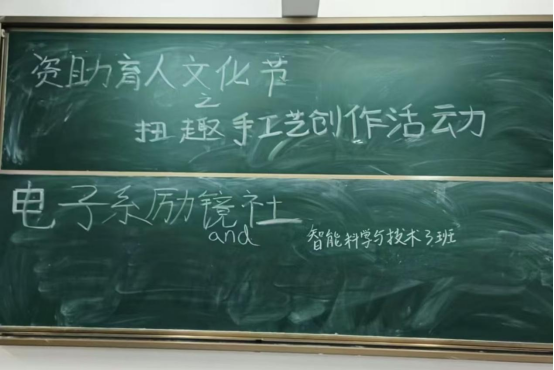 资助育人文化节
之
扭趣手工艺创作活动
电子系励镜社
and
智能科学与技术3班